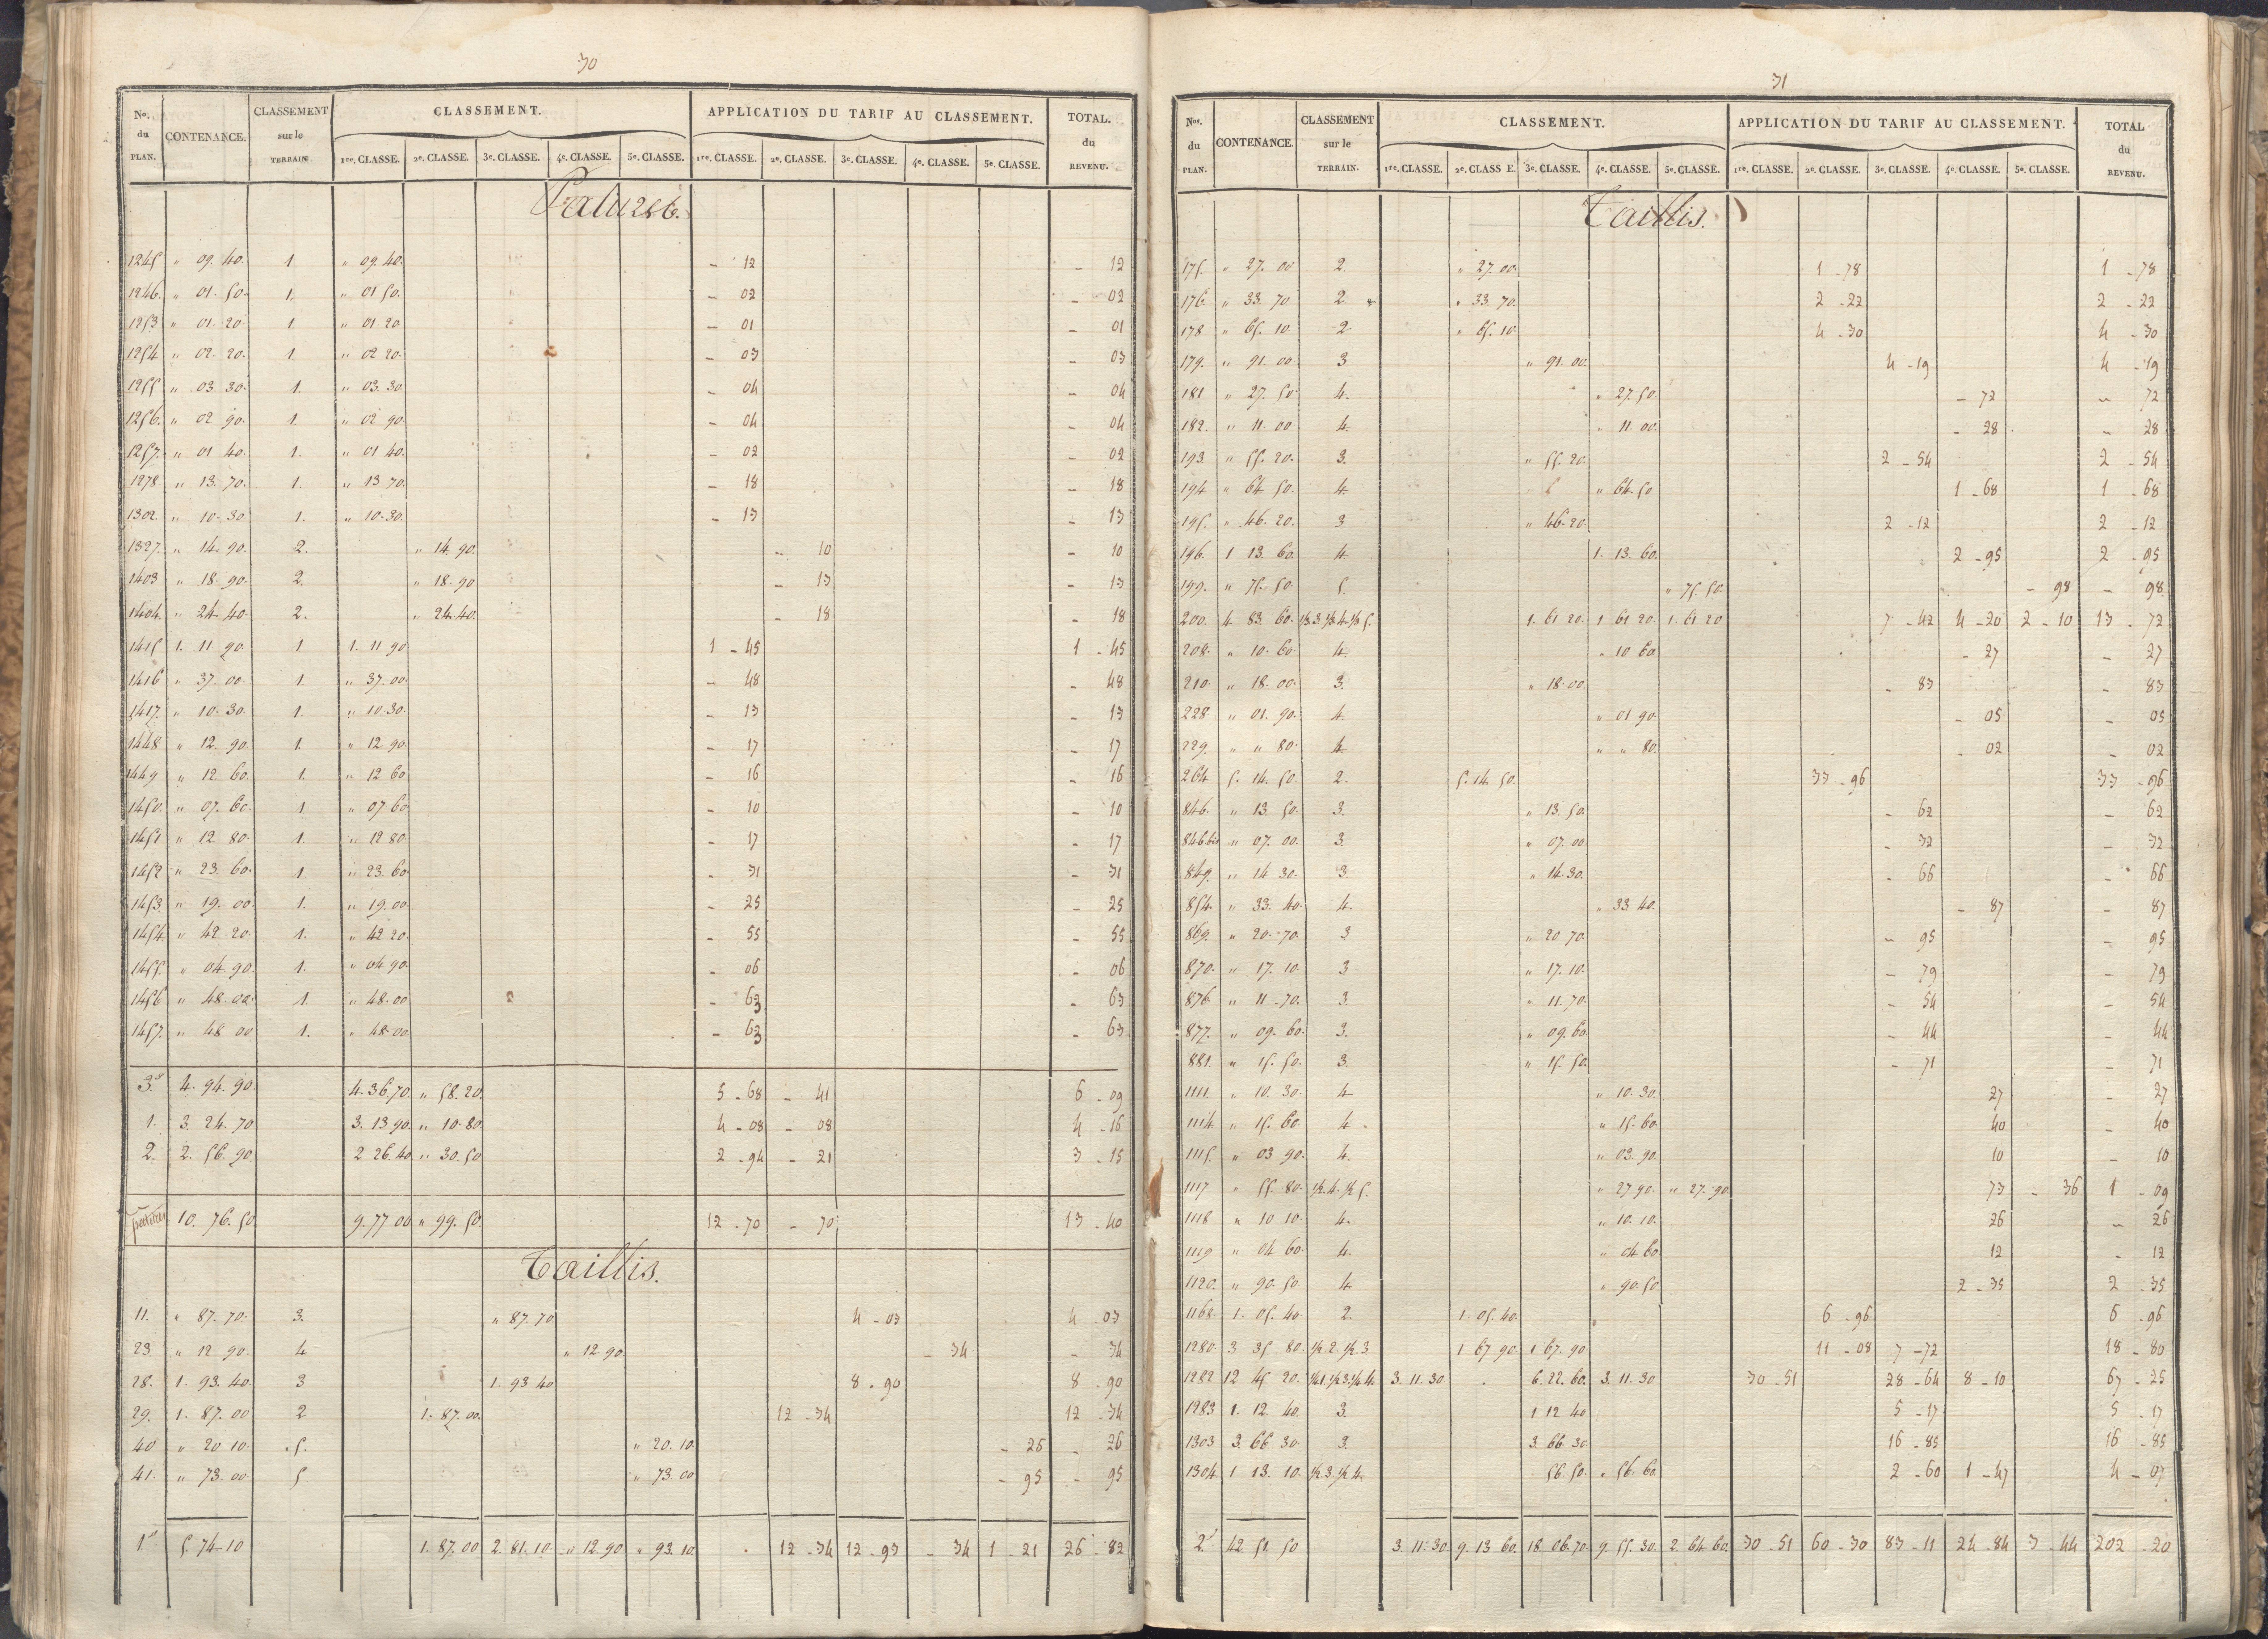 30
Nos. du PLAN. CONTENANCE. CLASSEMENT sur le TERRAIN. CLASSEMENT. APPLICATION DU TARIF AU CLASSEMENT. TOTAL. du REVENU.
1re. CLASSE. 2e. CLASSE. 3e. CLASSE. 4e. CLASSE. 5e. CLASSE. 1re. CLASSE. 2e. CLASSE. 3e. CLASSE. 4e. CLASSE. 5e. CLASSE.
Patures.
1245 " 09. 40. 1. " 09. 40. - 12 - 12
1246. " 01. 50. 1. " 01 50. - 02 - 02
1253 " 01. 20. 1. " 01. 20 - 01 - 01
1254 " 02. 20. 1. " 02 20. - 03 - 03
1255 " 03. 30. 1. " 03. 30. - 04 - 04
1256. " 02 90. 1. " 02 90. - 04 - 04
1257. " 01 40. 1. " 01 40. - 02 - 02
1278 " 13. 70. 1. " 13 70. - 18 - 18
1302. " 10. 30. 1. " 10. 30. - 13 - 13
1327. " 14. 90. 2. " 14. 90. - 10 - 10
1403 " 18. 90. 2. " 18. 90 - 13 - 13
1404. " 24. 40. 2. " 24. 40. - 18 - 18
1415 1. 11 90. 1 1. 11 90 1 - 45 1 - 45
1416 " 37. 00. 1. " 37. 00. - 48 - 48
1417. " 10. 30. 1. " 10. 30. - 13 - 13
1448 " 12. 90. 1. " 12 90. - 17 - 17
1449 " 12 60. 1. " 12 60 - 16 - 16
1450. " 07. 60. 1 " 07 60 - 10 - 10
1451 " 12 80. 1. " 12 80. - 17 - 17
1452 " 23. 60. 1 " 23. 60. - 31 - 31
1453. " 19. 00. 1. " 19. 00. - 25 - 25
1454 " 42. 20. 1. " 42 20. - 55 - 55
1455. " 04. 90. 1. " 04 90. - 06 - 06
1456 " 48. 00. 1. " 48. 00 - 63 - 63
1457. " 48 00 1. " 48. 00. - 63 - 63
3e 4. 94. 90. 4. 36. 70. " 58. 20. 5 - 68 - 41 6 - 09
1. 3. 24. 70 3. 13 90. " 10. 80. 4 - 08 - 08 4 - 16
2. 2. 56. 90 2 26. 40. " 30. 50 2 - 94 - 21 3 - 15
10. 76. 50. 9. 77 00 " 99. 50. 12 - 70 - 70 13 - 40
Taillis.
11. " 87. 70. 3. " 87. 70 4 - 03 4 - 03
23. " 12 90. 4 " 12 90. - 34 - 34
28. 1. 93. 40. 3 1. 93 40 8 - 90 8 - 90
29. 1. 87. 00 2 1. 87. 00. 12 - 34 12 - 34
40 " 20 10. 5. " 20. 10. - 26 - 26
41. " 73. 00 5 " 73. 00 - 95 - 95
1e 5. 74. 10 1. 87. 00 2. 81. 10. " 12. 90 " 93. 10. 12 - 34 12 - 93 - 34 1 - 21 26 - 82
31
Nos. du PLAN. CONTENANCE. CLASSEMENT sur le TERRAIN. CLASSEMENT. APPLICATION DU TARIF AU CLASSEMENT. TOTAL du REVENU.
1re. CLASSE. 2e. CLASS E. 3e. CLASSE. 4e. CLASSE. 5e. CLASSE. 1re. CLASSE. 2e. CLASSE. 3e. CLASSE. 4e. CLASSE. 5e. CLASSE.
Taillis.
175. " 27. 00 2. " 27. 00. 1 - 78 1 - 78
176. " 33. 70 2. " 33. 70. 2 - 22 2 - 22
178 " 65. 10. 2 " 65. 10. 4 - 30 4 - 30
179. " 91. 00. 3 " 91. 00. 4 - 19 4 - 19
181 " 27. 50. 4. " 27. 50. - 72 - 72
182. " 11. 00 4. " 11. 00. - 28 - 28
193. " 55. 20. 3. " 55. 20. 2 - 54 2 - 54
194. " 64. 50. 4. " 64. 50 1 - 68 1 - 68
195. " 46. 20. 3 " 46. 20. 2 - 12 2 - 12
196. 1 13. 60. 4. 1. 13. 60. 2 - 95 2 - 95
199. " 75. 50. 5. " 75. 50. - 98 - 98
200. 4. 83. 60. 1/3.3 1/3.4 1/3 5. 1. 61 20. 1 61 20. 1. 61 20 7 - 42 4 - 20 2 - 10 13 - 72
208. " 10. 60. 4. " 10 60 - 27 - 27
210. " 18. 00. 3. " 18. 00. - 83 - 83
228. " 01. 90. 4. " 01 90. - 05 - 05
229. " " 80. 4 " " 80. - 02 - 02
264 5. 14. 50. 2. 5. 14. 50. 33 - 96 33 - 96
846. " 13. 50. 3. " 13. 50. - 62 - 62
846 bis " 07. 00. 3. " 07. 00 - 32 - 32
849. " 14 30. 3. " 14. 30. - 66 - 66
854. " 33. 40. 4. " 33 40. - 87 - 87
869. " 20. 70. 3 " 20 70. - 95 - 95
870. " 17. 10. 3 " 17. 10. - 79 - 79
876. " 11. 70. 3. " 11. 70. - 54 - 54
877. " 09. 60. 3. " 09. 60. - 44 - 44
881. " 15. 50. 3. " 15. 50. - 71 - 71
1111. " 10. 30. 4 " 10. 30. 27 - 27
1114. " 15. 60. 4. " 15. 60. 40 - 40
1115. " 03 90. 4. " 03. 90. 10 - 10
1117 " 55. 80. 1/2.4. 1/2 5. " 27. 90. " 27. 90. 73 - 36 1 - 09
1118 " 10 10. 4. " 10. 10. 26 - 26
1119 " 04 60. 4. " 04. 60 12 - 12
1120. " 90. 50. 4 " 90. 50. 2 - 35 2 - 35
1168. 1. 05. 40 2. 1. 05. 40. 6 - 96 6 - 96
1280. 3 35. 80. 1/2.2. 1/2.3 1 67. 90. 1 67. 90 11 - 08 7 - 72 18 - 80
1282 12 45 20. 1/4.1. 1/2.3. 1/4 4. 3. 11. 30 6. 22. 60. 3. 11. 30 30 - 51 28 - 64 8 - 10 67 - 25
1283 1. 12 40. 3. 1 12 40 5 - 17 5 - 17
1303 3. 66 30. 3. 3. 66. 30 16 - 85 16 - 85
1304 1 13. 10. 1/2 3. 1/2 4. 56. 50. " 56. 60. 2 - 60 1 - 47 4 - 07
2e 42. 51. 50 3. 11. 30. 9. 13 60. 18. 06. 70. 9. 55. 30. 2. 64 60. 30 - 51 60 - 30 83 - 11 24 - 84 3 - 44 202 - 20